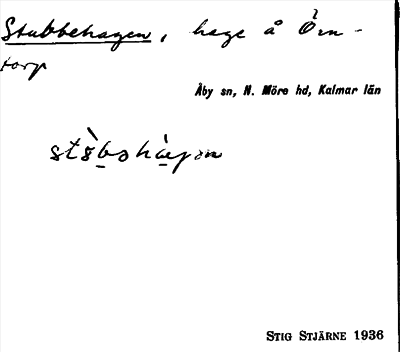 Stubbehagen, hage å Örn-
torp
Åby sn, N. Möre hd, Kalmar län
STIG STJÄRNE 1936